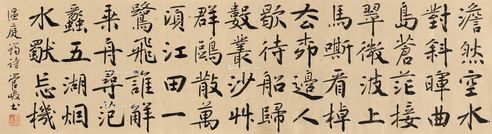 澹然空水
對斜暉曲
島蒼茫接
翠微波上
馬嘶看棹
去柳邊人
歇待船歸
數叢沙艸
群鷗散萬
頃江田一
鷺飛誰解
乘舟尋范
蠡五湖烟
水獨忘機
温庭筠诗 管峻书